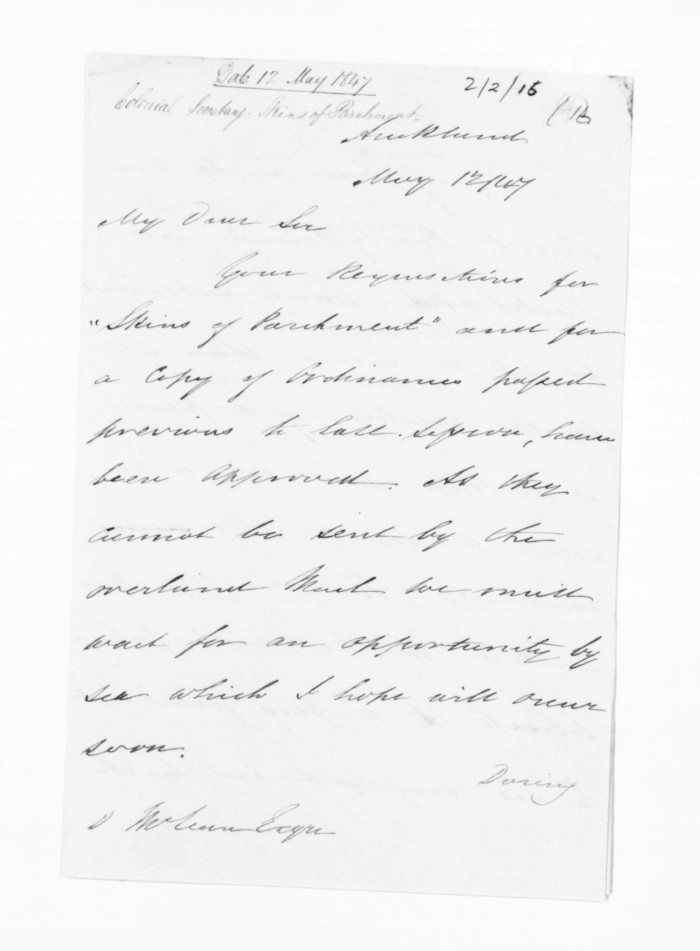 Date 12 May 1847
2/2/16
Colonial Secretary - Skins of Parchment
Auckland
May 12/47
My Dear Sir
Your Requisitions for
"Skins of Parchment" and for
a Copy of Ordinances passed
previous to last session, have
been approved. As they
cannot be sent by the
overland Mail we must
wait for an opportunity by
sea which I hope will occur
soon.
During
D McLean Esqre